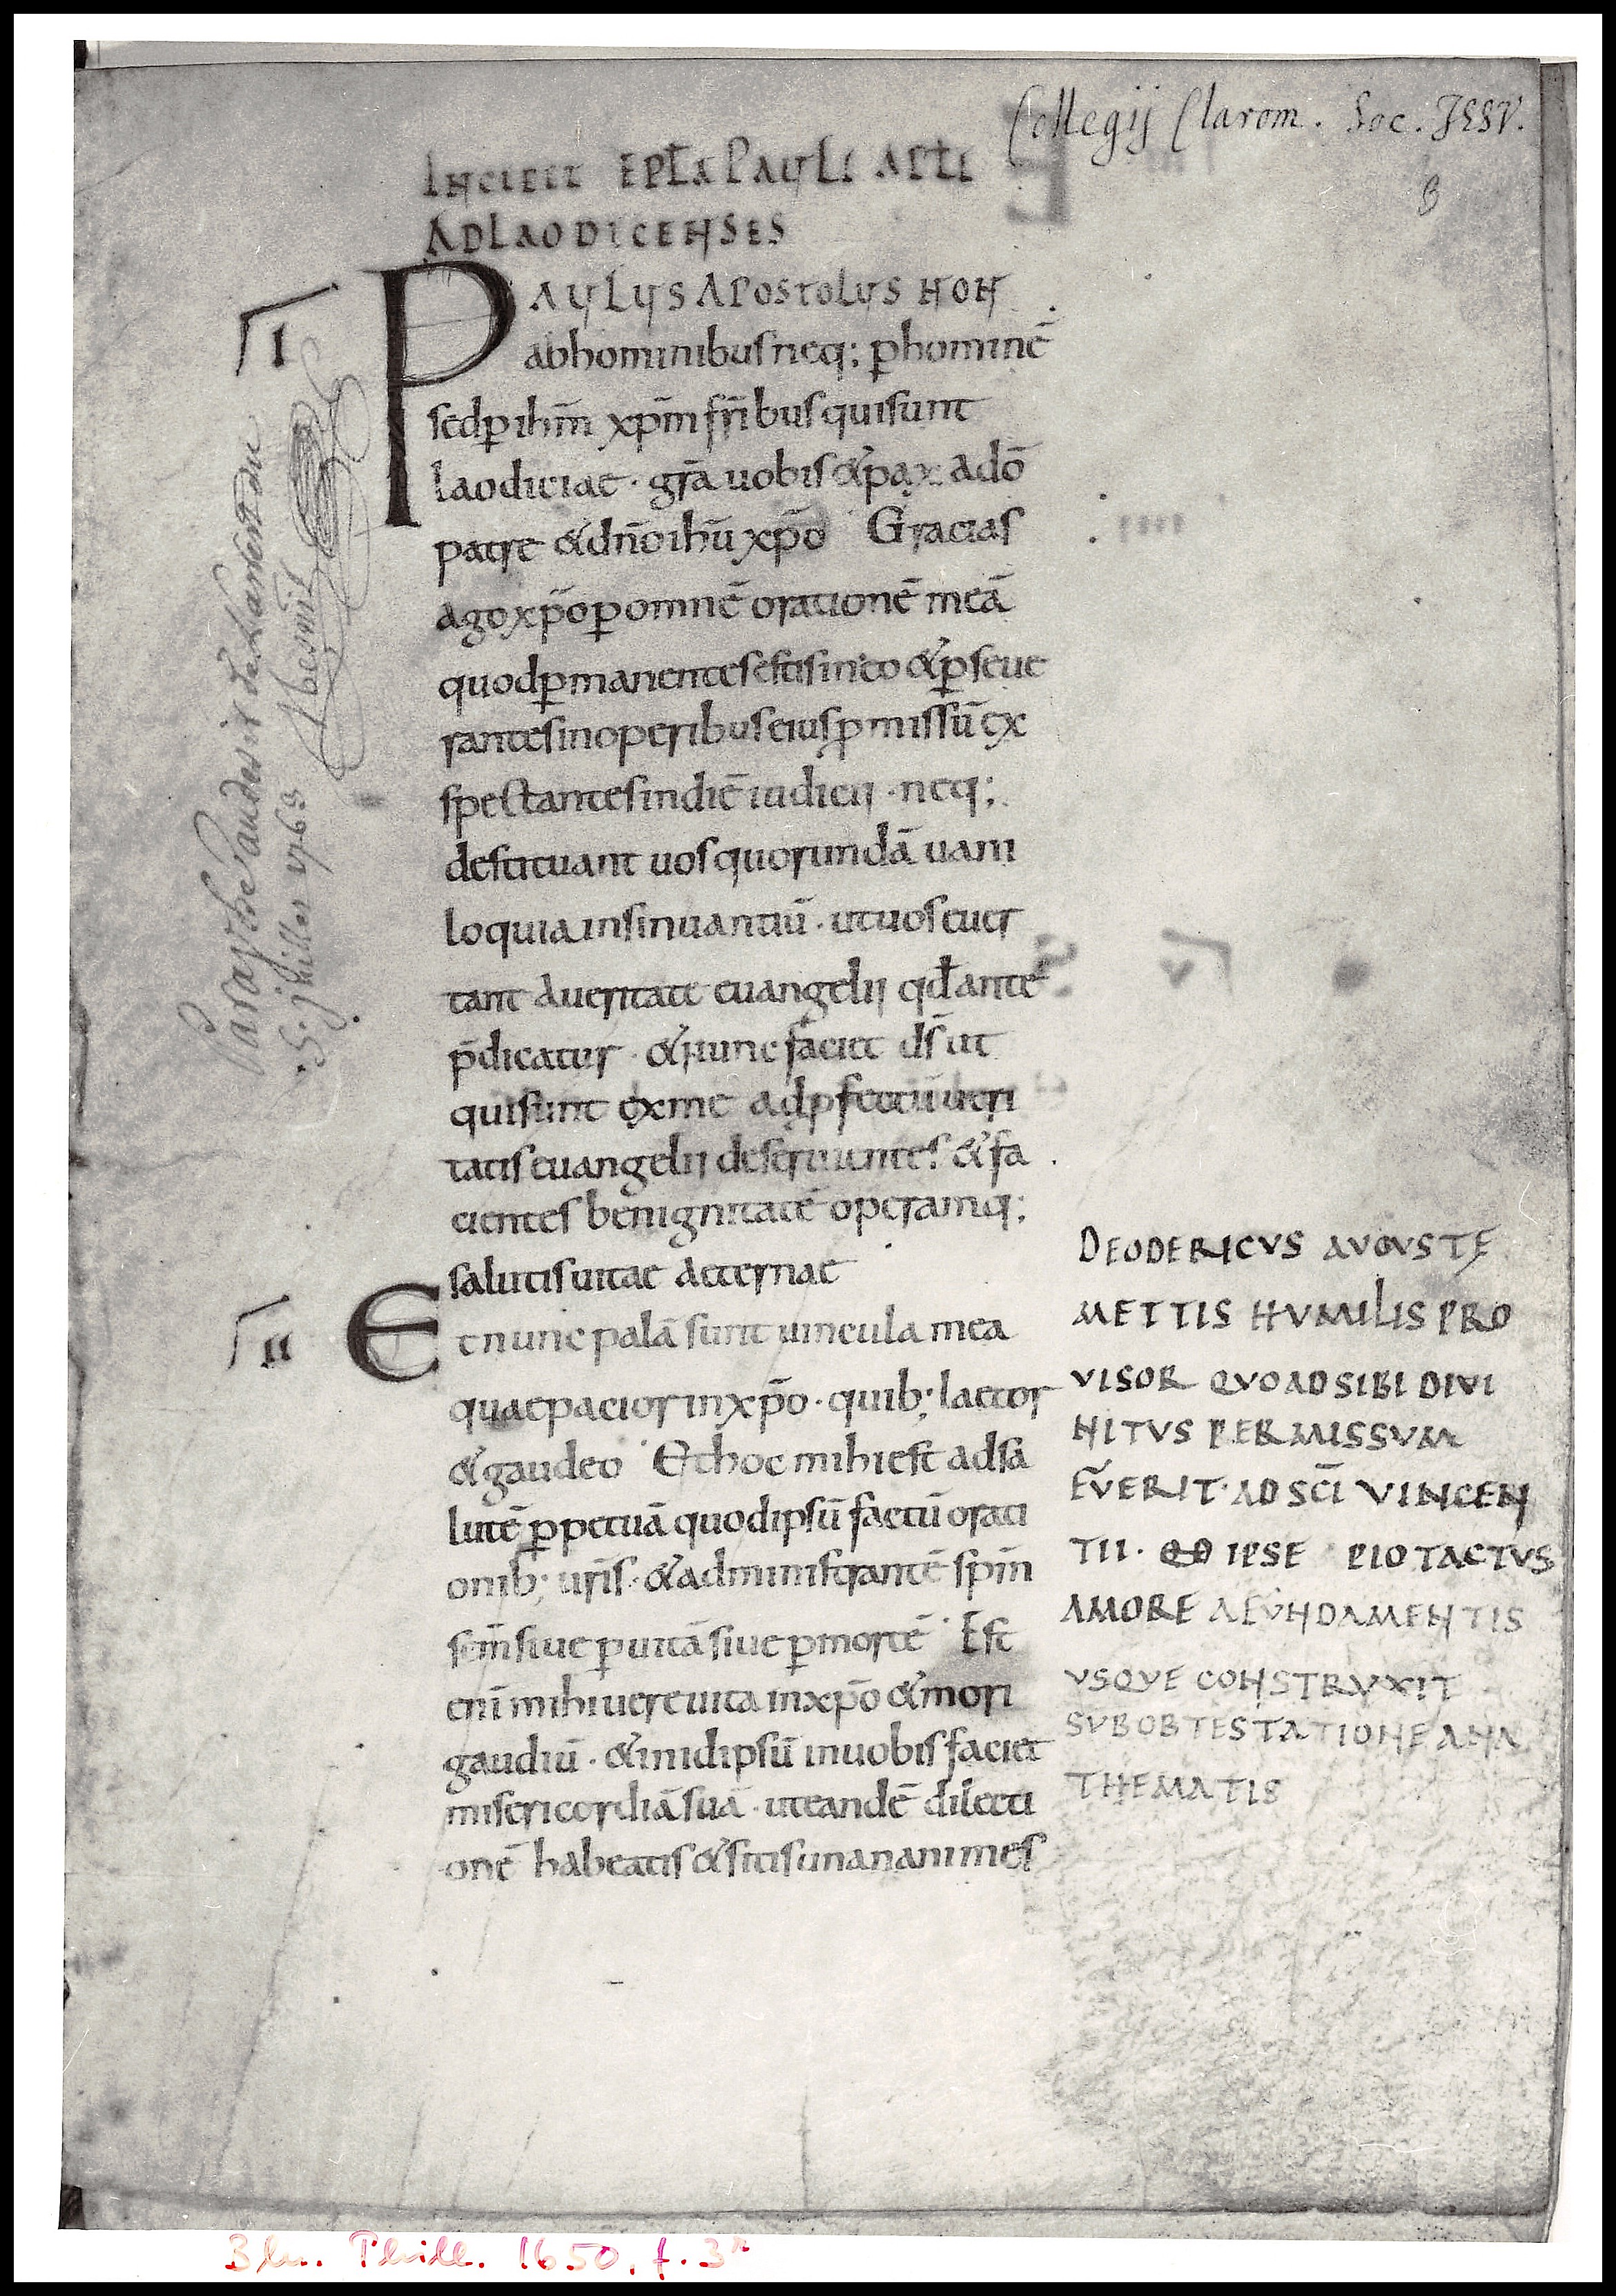 Collegij Clarom. Soc. JESV.
INCIPIT EPLA PAULI APLI
AD LAODICENSES
I
PAULUS APOSTOLUS NON
ab hominibus neq; p̱ hominē
sed p̱ ihm̄ xp̄m fr̄ibus qui sunt
laodiciae · gr̄a uobis & pax a dō
patre & dn̄o ihū xp̄o Gracias
ago xp̄o p̱ omnē orationē meā
quod p̱manentes estis in eo & p̱seue
rantes in operibus eius p̱missū ex
spectantes in diē iudicii · neq;
destituant uos quorundā uani
loquia insinuantiū · ut uos euer
tant a ueritate euangelii qđ ante
p̄dicatur · & nunc faciet ds̄ ut
qui sunt ex me ad p̱fectū ueri
tatis euangelii deseruientes & fa
cientes benignitatē operamq;
salutis uitae aeternae
II
Et nunc palā sunt uincula mea
quae pacior in xp̄o · quib; laetor
& gaudeo Et hoc mihi est ad sa
lutē p̱petuā quod ipsū factū orati
onib; ur̄is · & administrantē sp̄m
sc̄m siue p̱ uitā siue p̱ mortē Est
eni̅ mihi uere uita in xp̄o & mori
gaudiū · & in idipsū in uobis faciet
misericordiā suā · ut eandē dilecti
onē habeatis & sitis unananimes
DEODERICVS AVGVSTE
METTIS HVMILIS PRO
VISOR QVOAD SIBI DIVI
NITVS PERMISSVM
FVERIT · AD SC̄I VINCEN
TII · QD IPSE PIO TACTVS
AMORE A FVNDAMENTIS
VSQVE CONSTRVXIT
SVB OBTESTATIONE ANA
THEMATIS
Paraphé au desir de l'arrest du
5. juillet 1763
Mesnil
Bln. Phill. 1650, f. 3r